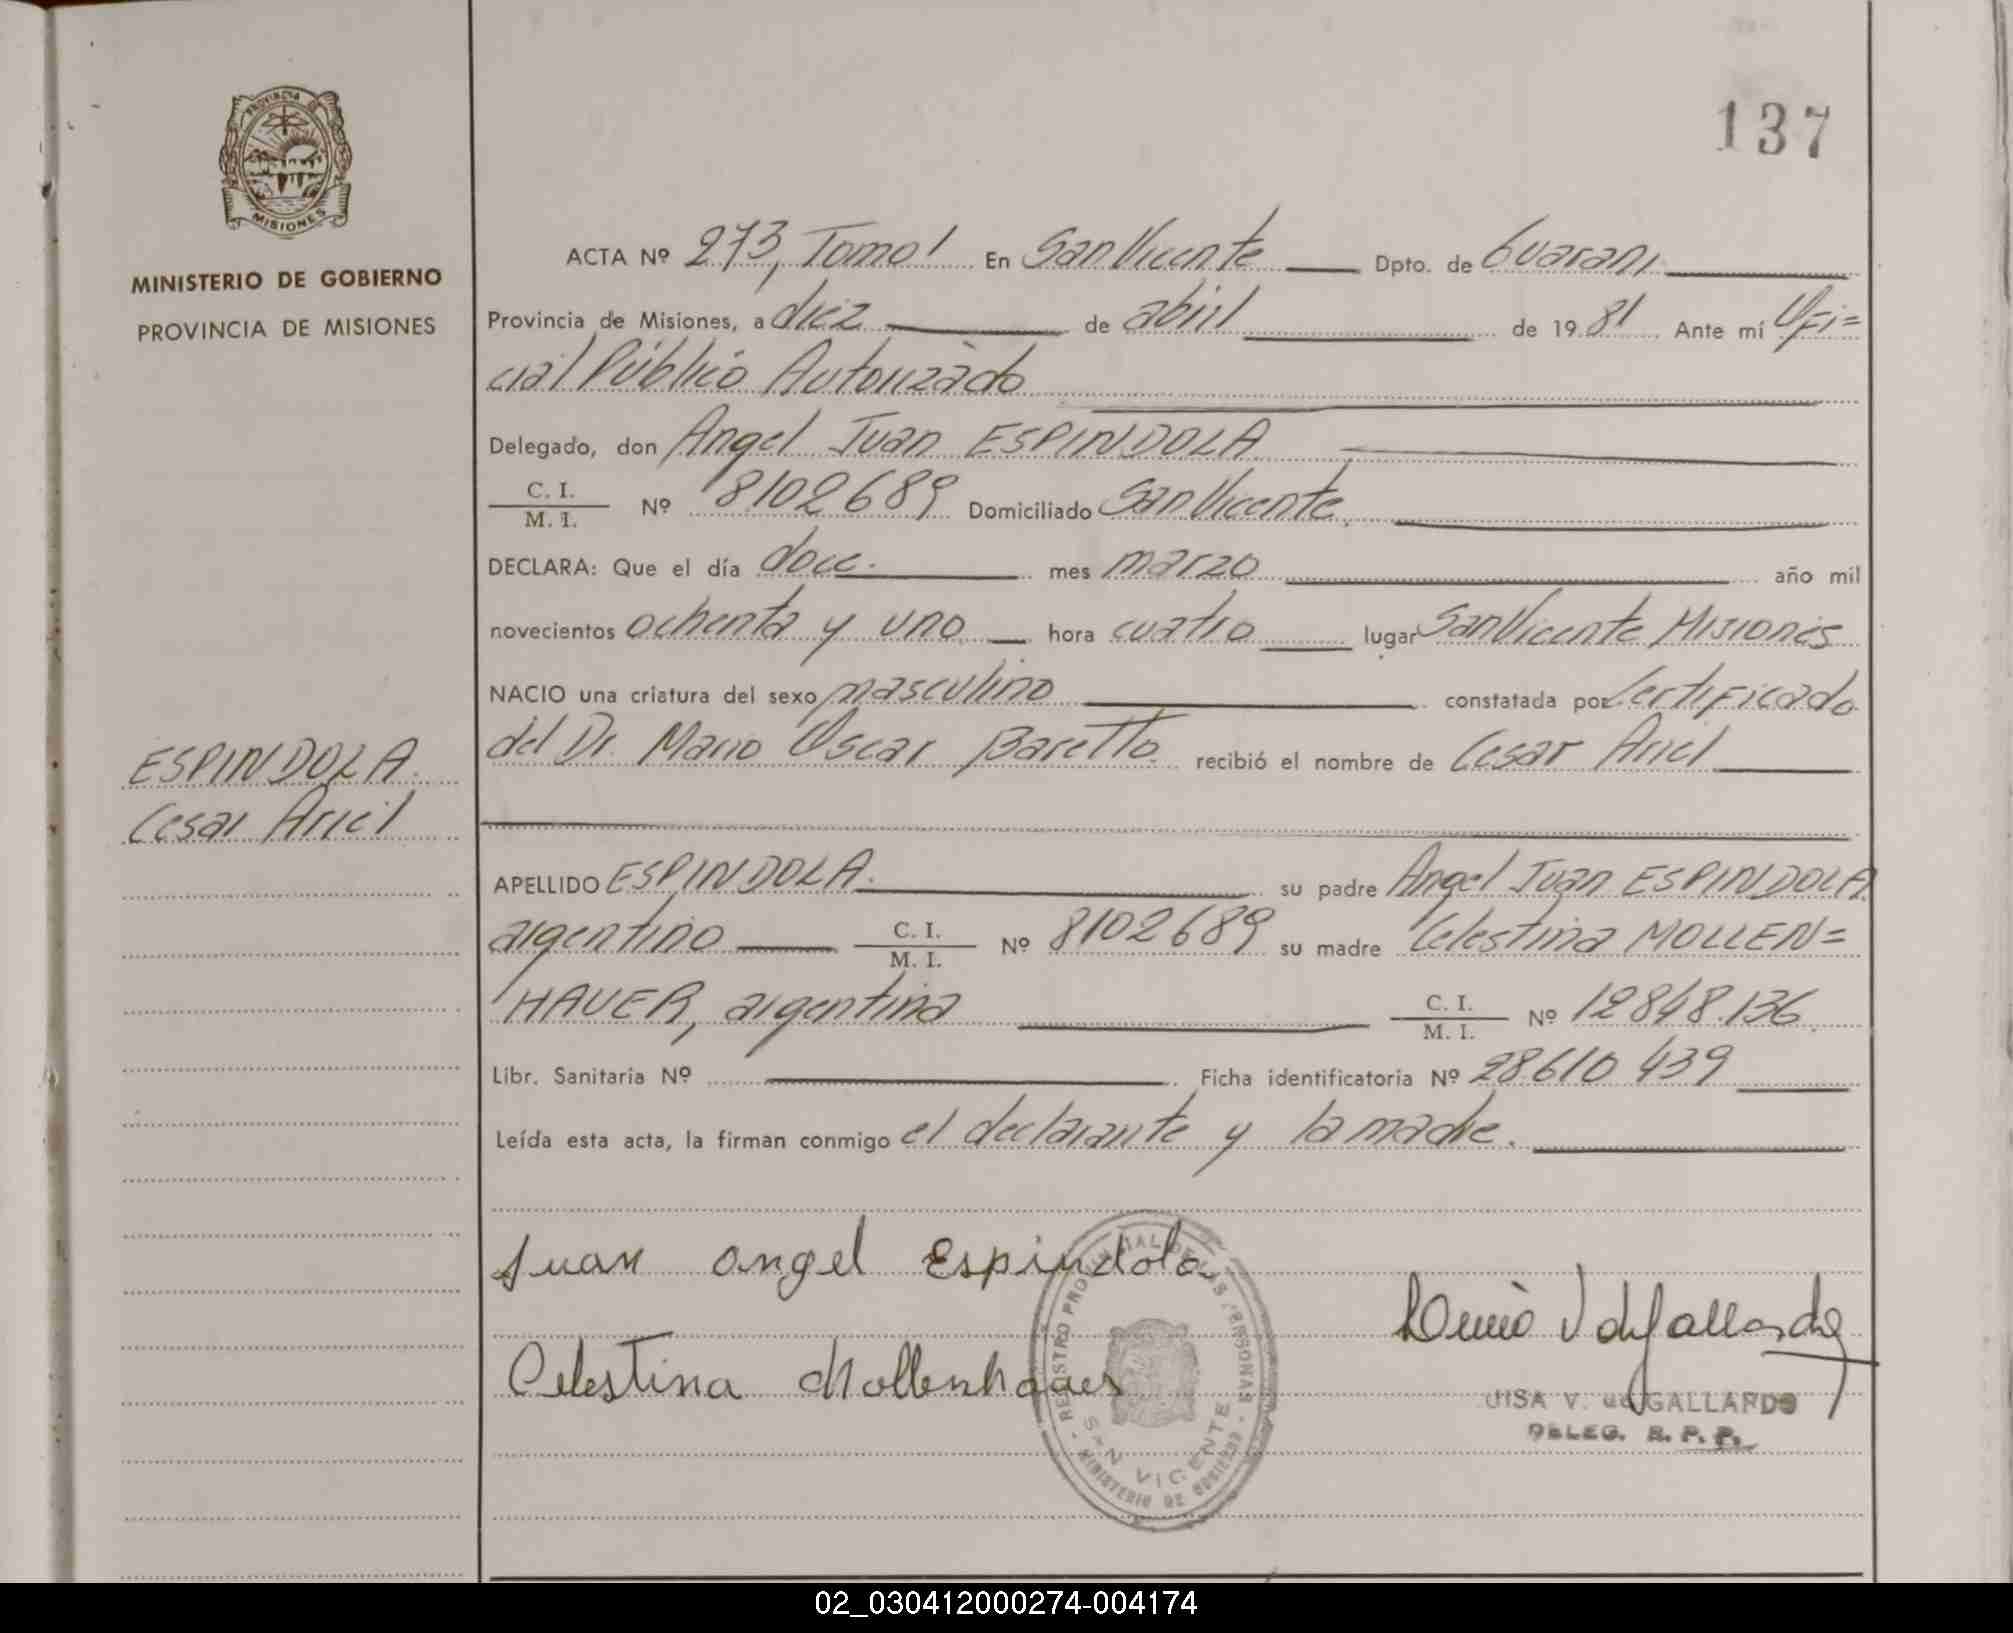 137
PROVINCIA DE
MISIONES
MINISTERIO DE GOBIERNO
PROVINCIA DE MISIONES
ACTA Nº 273, Tomo I En San Vicente Dpto. de Guarani
Provincia de Misiones, a diez de abril de 1981 Ante mí Ofi=
cial Público Autorizado
Delegado, don Angel Juan ESPINDOLA
C. I.
M. I. Nº 8102689 Domiciliado San Vicente.
DECLARA: Que el día doce. mes marzo año mil
novecientos ochenta y uno hora cuatro lugar San Vicente Misiones
NACIO una criatura del sexo masculino constatada por Certificado
del Dr. Mario Oscar Baretto recibió el nombre de Cesar Ariel
ESPINDOLA
Cesar Ariel
APELLIDO ESPINDOLA. su padre Angel Juan ESPINDOLA
argentino C. I.
M. I. Nº 8102689 su madre Celestina MOLLEN=
HAUER, argentina C. I.
M. I. Nº 12848.136
Libr. Sanitaria Nº Ficha identificatoria Nº 28610439
Leída esta acta, la firman conmigo el declarante y la madre.
Juan angel Espindola
Celestina Mollenhauer
REGISTRO PROVINCIAL DE LAS PERSONAS
SAN VICENTE
MINISTERIO DE GOBIERNO
V. de GALLARDO
DELEG. R. P. P.
02_030412000274-004174